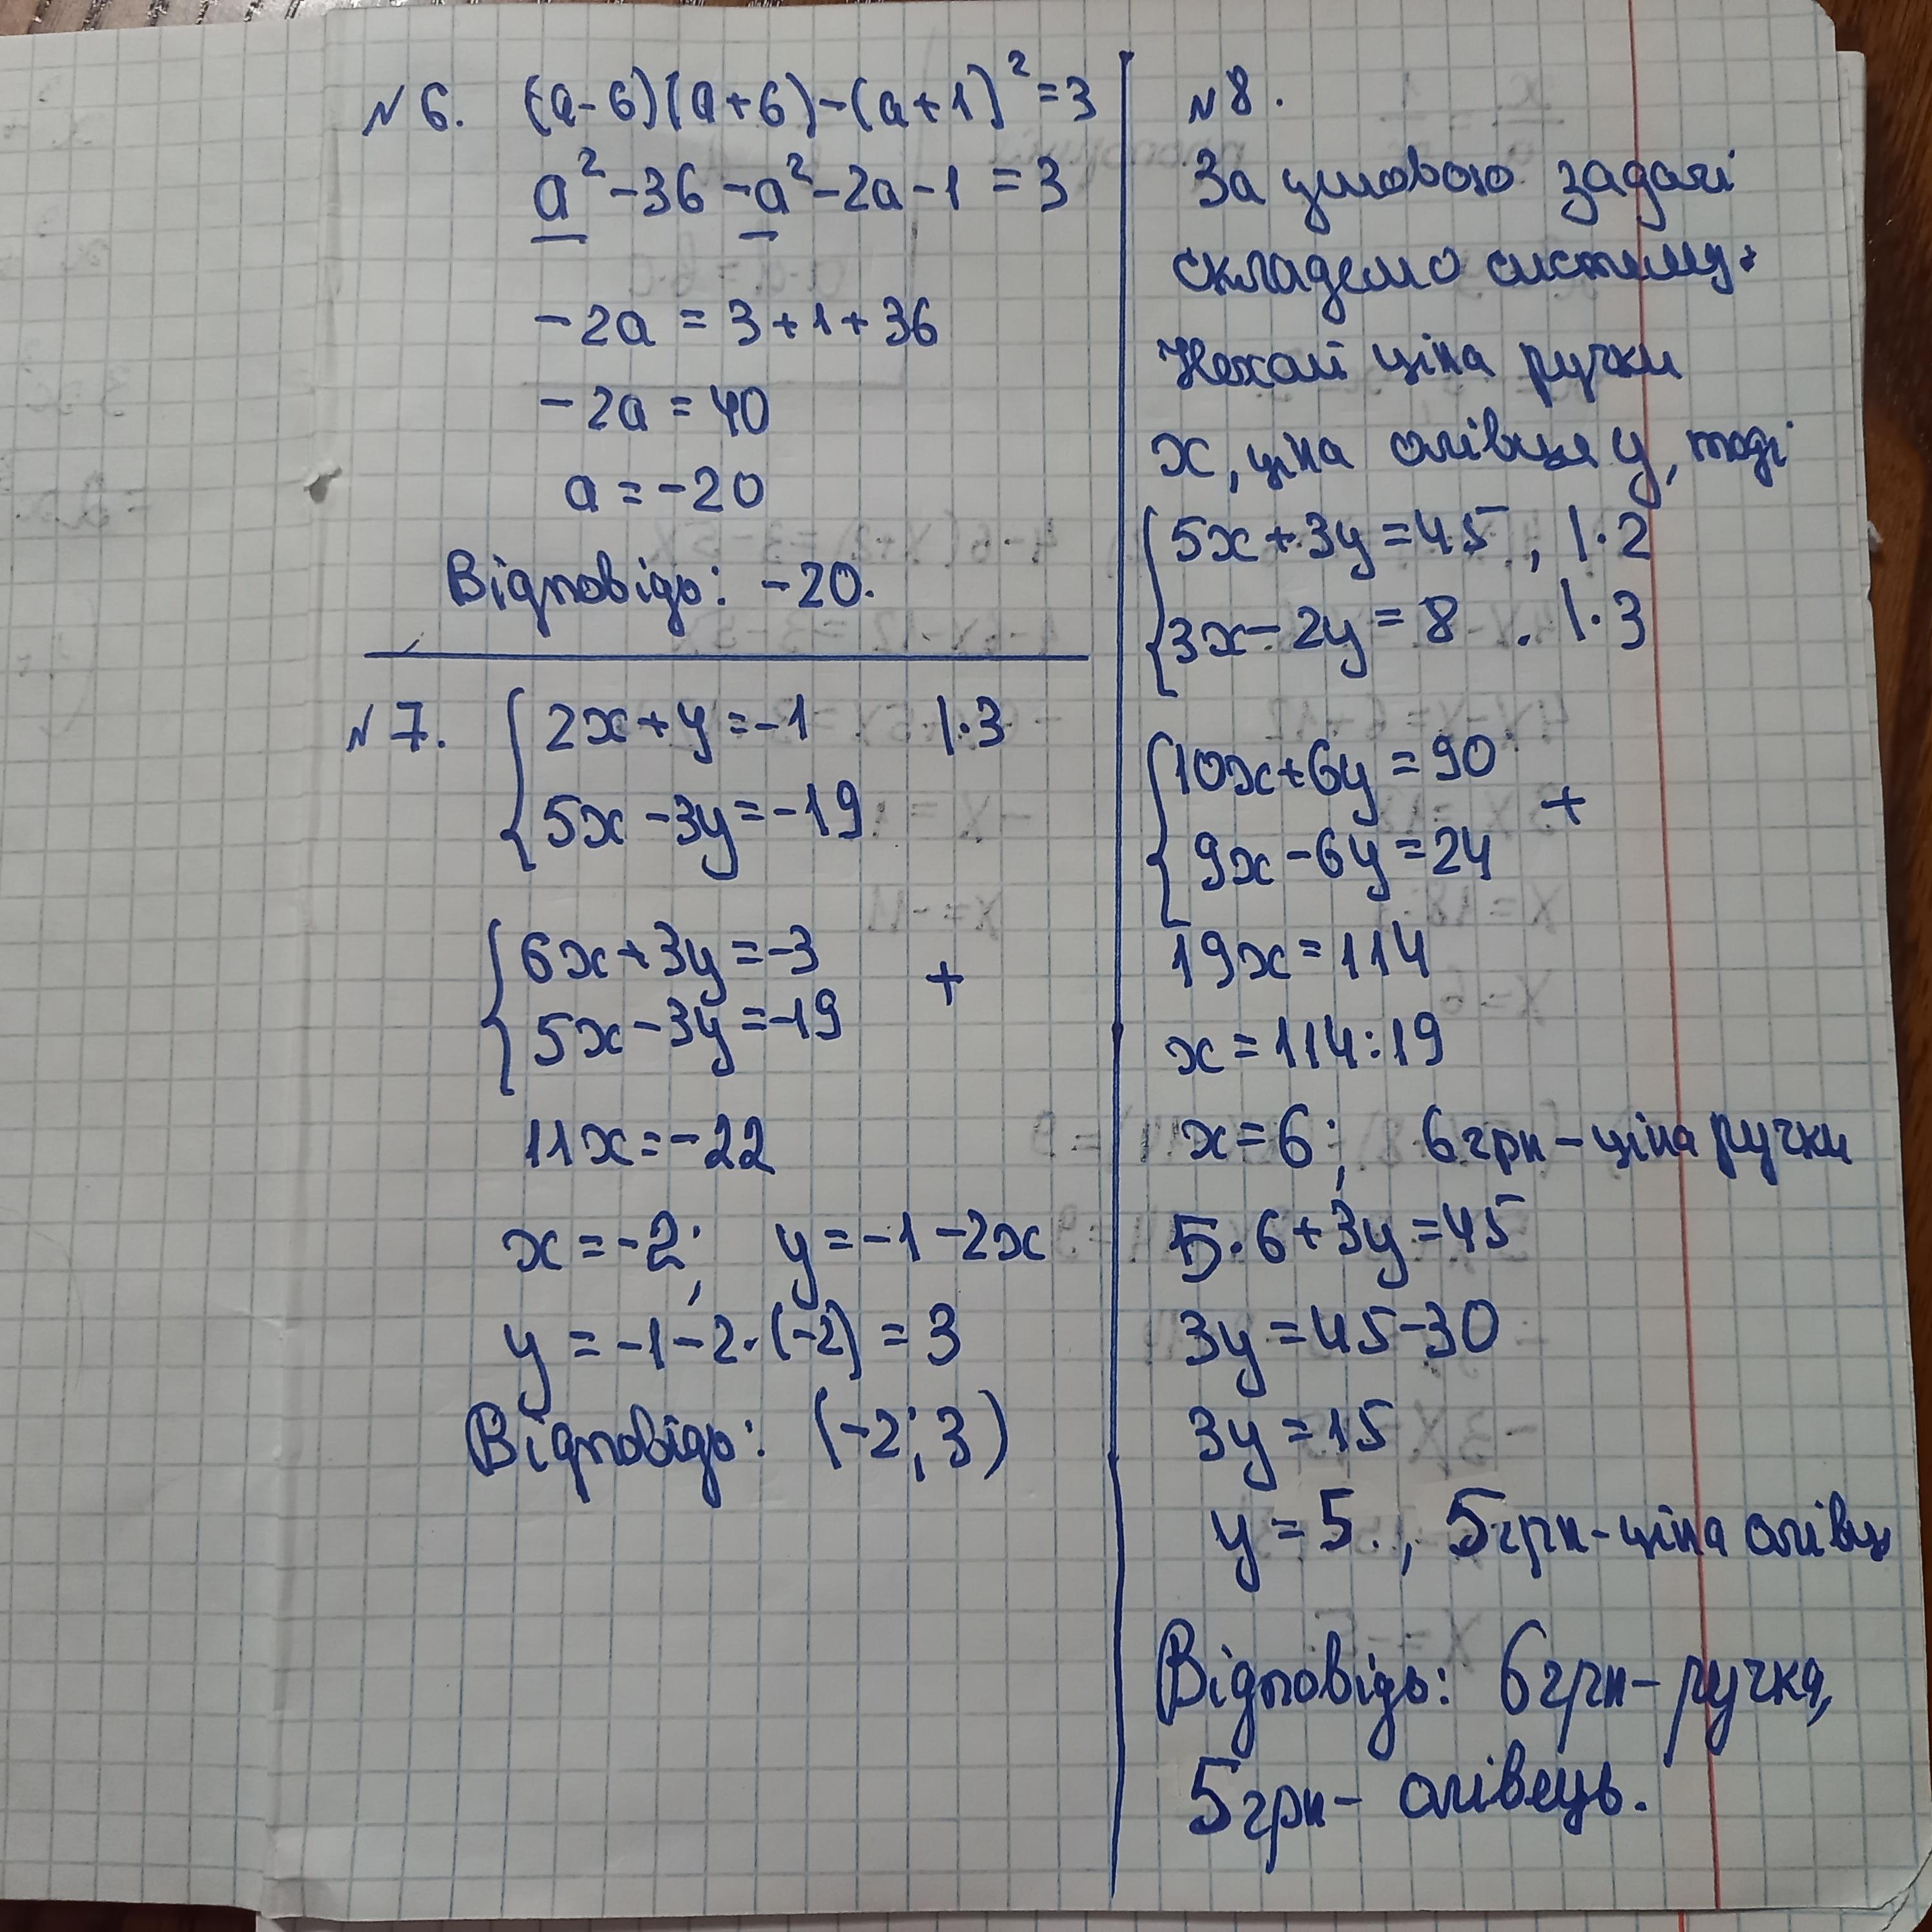 №6. (a-6)(a+6)-(a+1)²=3
a²-36-a²-2a-1=3
-2a=3+1+36
-2a=40
a=-20
Відповідь: -20.
№7. {2x+y=-1 |·3
{5x-3y=-19
{6x+3y=-3 +
{5x-3y=-19
11x=-22
x=-2; y=-1-2x
y=-1-2·(-2)=3
Відповідь: (-2;3)
№8.
За умовою задачі
складемо систему.
Нехай ціна ручки
x, ціна олівця y, тоді
{5x+3y=45, |·2
{3x-2y=8. |·3
{10x+6y=90 +
{9x-6y=24
19x=114
x=114:19
x=6; 6грн-ціна ручки
5·6+3y=45
3y=45-30
3y=15
y=5., 5грн-ціна олівця
Відповідь: 6грн-ручка,
5грн- олівець.